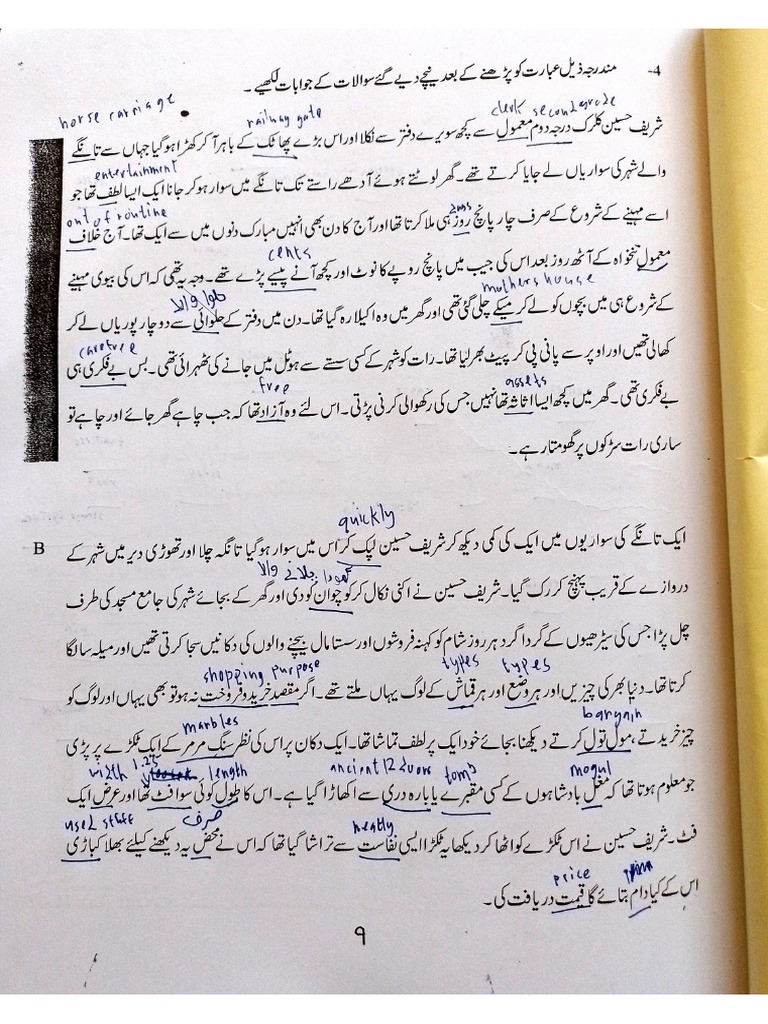 4- مندرجہ ذیل عبارت کو پڑھنے کے بعد نیچے دیے گئے سوالات کے جوابات لکھیے۔
horse carriage railway gate clerk second grade
شریف حسین کلرک درجہ دوم معمول سے کچھ سویرے دفتر سے نکلا اور اس بڑے پھاٹک کے باہر آ کر کھڑا ہو گیا جہاں سے تانگے
entertainment
والے شہر کی سواریاں لے جایا کرتے تھے۔ گھر لوٹتے ہوئے آدھے راستے تک تانگے میں سوار ہو کر جانا ایک ایسا لطف تھا جو
out of routine
اسے مہینے کے شروع کے صرف چار پانچ روز ہی ملا کرتا تھا اور آج کا دن بھی انہیں مبارک دنوں میں سے ایک تھا۔ آج خلاف
cents
معمول تنخواہ کے آٹھ روز بعد اس کی جیب میں پانچ روپے کا نوٹ اور کچھ آنے پیسے پڑے تھے۔ وجہ یہ تھی کہ اس کی بیوی مہینے
mothers house
کے شروع ہی میں بچوں کو لے کر میکے چلی گئی تھی اور گھر میں وہ اکیلا رہ گیا تھا۔ دن میں دفتر کے حلوائی سے دو چار پوریاں لے کر
carefree
کھا لی تھیں اور اوپر سے پانی پی کر پیٹ بھر لیا تھا۔ رات کو شہر کے کسی سستے سے ہوٹل میں جانے کی ٹھہرائی تھی۔ بس بے فکری ہی
free assets
بے فکری تھی۔ گھر میں کچھ ایسا اثاثہ تھا نہیں جس کی رکھوالی کرنی پڑتی۔ اس لئے وہ آزاد تھا کہ جب چاہے گھر جائے اور چاہے تو
ساری رات سڑکوں پر گھومتا رہے۔
quickly
B ایک تانگے کی سواریوں میں ایک کی کمی دیکھ کر شریف حسین لپک کر اس میں سوار ہو گیا تانگہ چلا اور تھوڑی دیر میں شہر کے
گھوڑا چلانے والا
دروازے کے قریب پہنچ کر رک گیا۔ شریف حسین نے اکنی نکال کر کوچوان کو دی اور گھر کے بجائے شہر کی جامع مسجد کی طرف
چل پڑا جس کی سیڑھیوں کے گرداگرد ہر روز شام کو کہنہ فروشوں اور سستا مال بیچنے والوں کی دکانیں سجا کرتی تھیں اور میلہ سا لگا
shopping purpose types types
کرتا تھا۔ دنیا بھر کی چیزیں اور ہر وضع اور ہر قماش کے لوگ یہاں ملتے تھے۔ اگر مقصد خرید و فروخت نہ ہو تو بھی یہاں اور لوگ کو
marbles bargain
چیز خریدتے، مول تول کرتے دیکھنا بجائے خود ایک پر لطف تماشا تھا۔ ایک دکان پر اس کی نظر سنگ مرمر کے ایک ٹکڑے پر پڑی
width 1.25 length ancient 12 doors tomb mogul
جو معلوم ہوتا تھا کہ مغل بادشاہوں کے کسی مقبرے یا بارہ دری سے اکھاڑا گیا ہے۔ اس کا طول کوئی سوا فٹ تھا اور عرض ایک
used stuff صرف neatly
فٹ۔ شریف حسین نے اس ٹکڑے کو اٹھا کر دیکھا یہ ٹکڑا ایسی نفاست سے تراشا گیا تھا کہ اس نے محض یہ دیکھنے کیلئے بھلا کباڑی
price
اس کے کیا دام بتائے گا قیمت دریافت کی۔
9